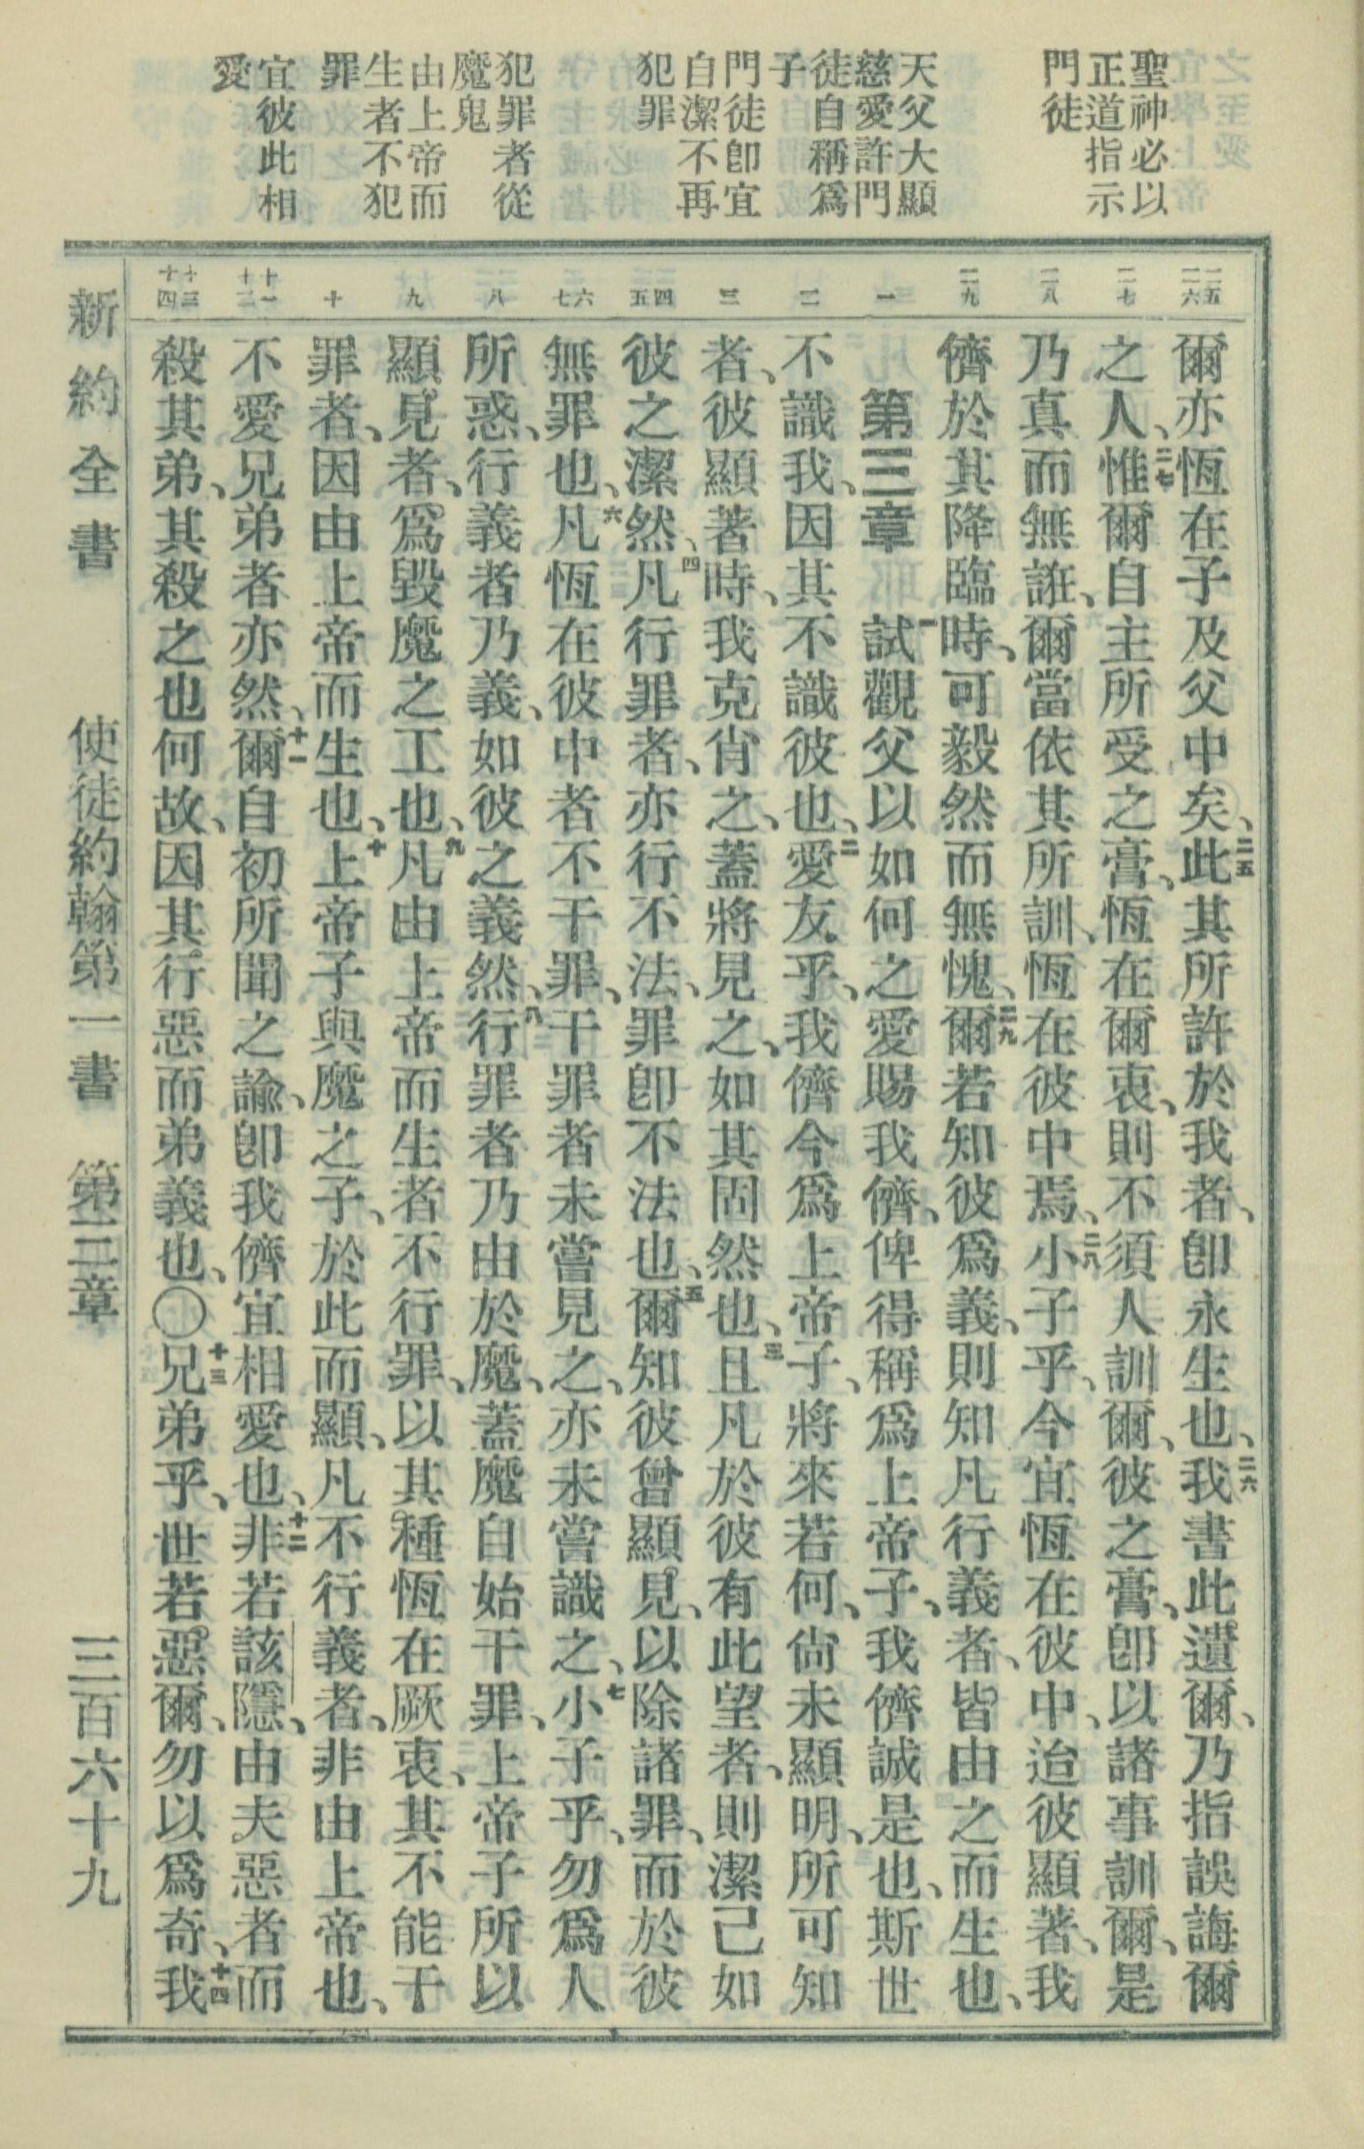 聖神必以
正道指示
門徒
天父大顯
慈愛許門
徒自稱爲
子
門徒卽宜
自潔不再
犯罪
犯罪者從
魔鬼
由上帝而
生者不犯
罪
宜彼此相
愛
二五 二六
二七
二八
二九
一
二
三
四 五
六 七
八
九
十
十一 十二
十三 十四
爾亦恆在子及父中矣、二五此其所許於我者、卽永生也、二六我書此遺爾、乃指誤誨爾
之人、二七惟爾自主所受之膏、恆在爾衷、則不須人訓爾、彼之膏、卽以諸事訓爾、是
乃真而無誑、爾當依其所訓、恆在彼中焉、二八小子乎、今宜恆在彼中、迨彼顯著、我
儕於其降臨時、可毅然而無愧、二九爾若知彼爲義、則知凡行義者、皆由之而生也、
第三章 一試觀父以如何之愛賜我儕、俾得稱爲上帝子、我儕誠是也、斯世
不識我、因其不識彼也、二愛友乎、我儕今爲上帝子、將來若何、尙未顯明、所可知
者、彼顯著時、我克肖之、蓋將見之、如其固然也、三且凡於彼有此望者、則潔己如
彼之潔然、四凡行罪者、亦行不法、罪卽不法也、五爾知彼曾顯見、以除諸罪、而於彼
無罪也、六凡恆在彼中者不干罪、干罪者未嘗見之、亦未嘗識之、七小子乎、勿爲人
所惑、行義者乃義、如彼之義然、八行罪者乃由於魔、蓋魔自始干罪、上帝子所以
顯見者、爲毀魔之工也、九凡由上帝而生者不行罪、以其種恆在厥衷、其不能干
罪者、因由上帝而生也、十上帝子與魔之子、於此而顯、凡不行義者、非由上帝也、
不愛兄弟者亦然、十一爾自初所聞之諭、卽我儕宜相愛也、十二非若該隱、由夫惡者而
殺其弟、其殺之也何故、因其行惡而弟義也、〇十三兄弟乎、世若惡爾、勿以爲奇、十四我
新約全書 使徒約翰第一書 第三章 三百六十九